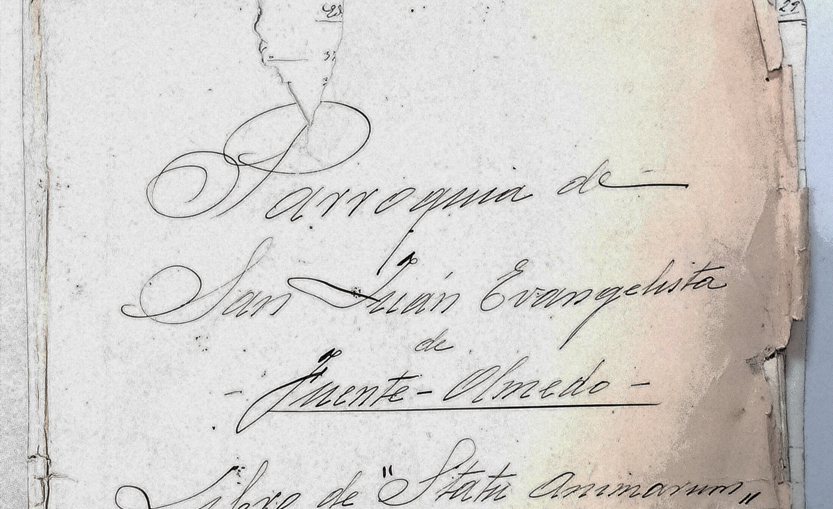 23
29
3
Parroquia de —
San Juán Evangelista
de
- Fuente - Olmedo -
Libro de "Statu animarum„